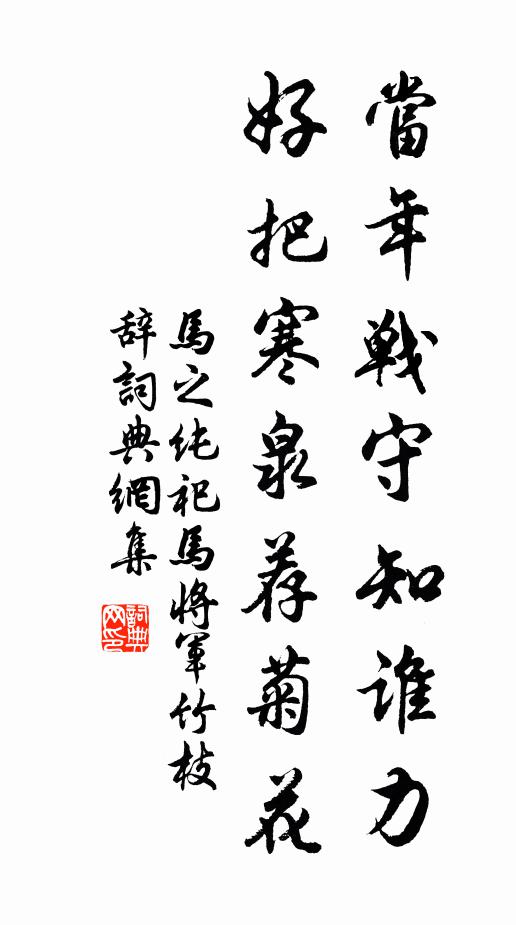 當年戰守知誰力
好把寒泉荐菊花
馬之纯祀馬將軍竹枝
辞詞典網集
詞典
网印